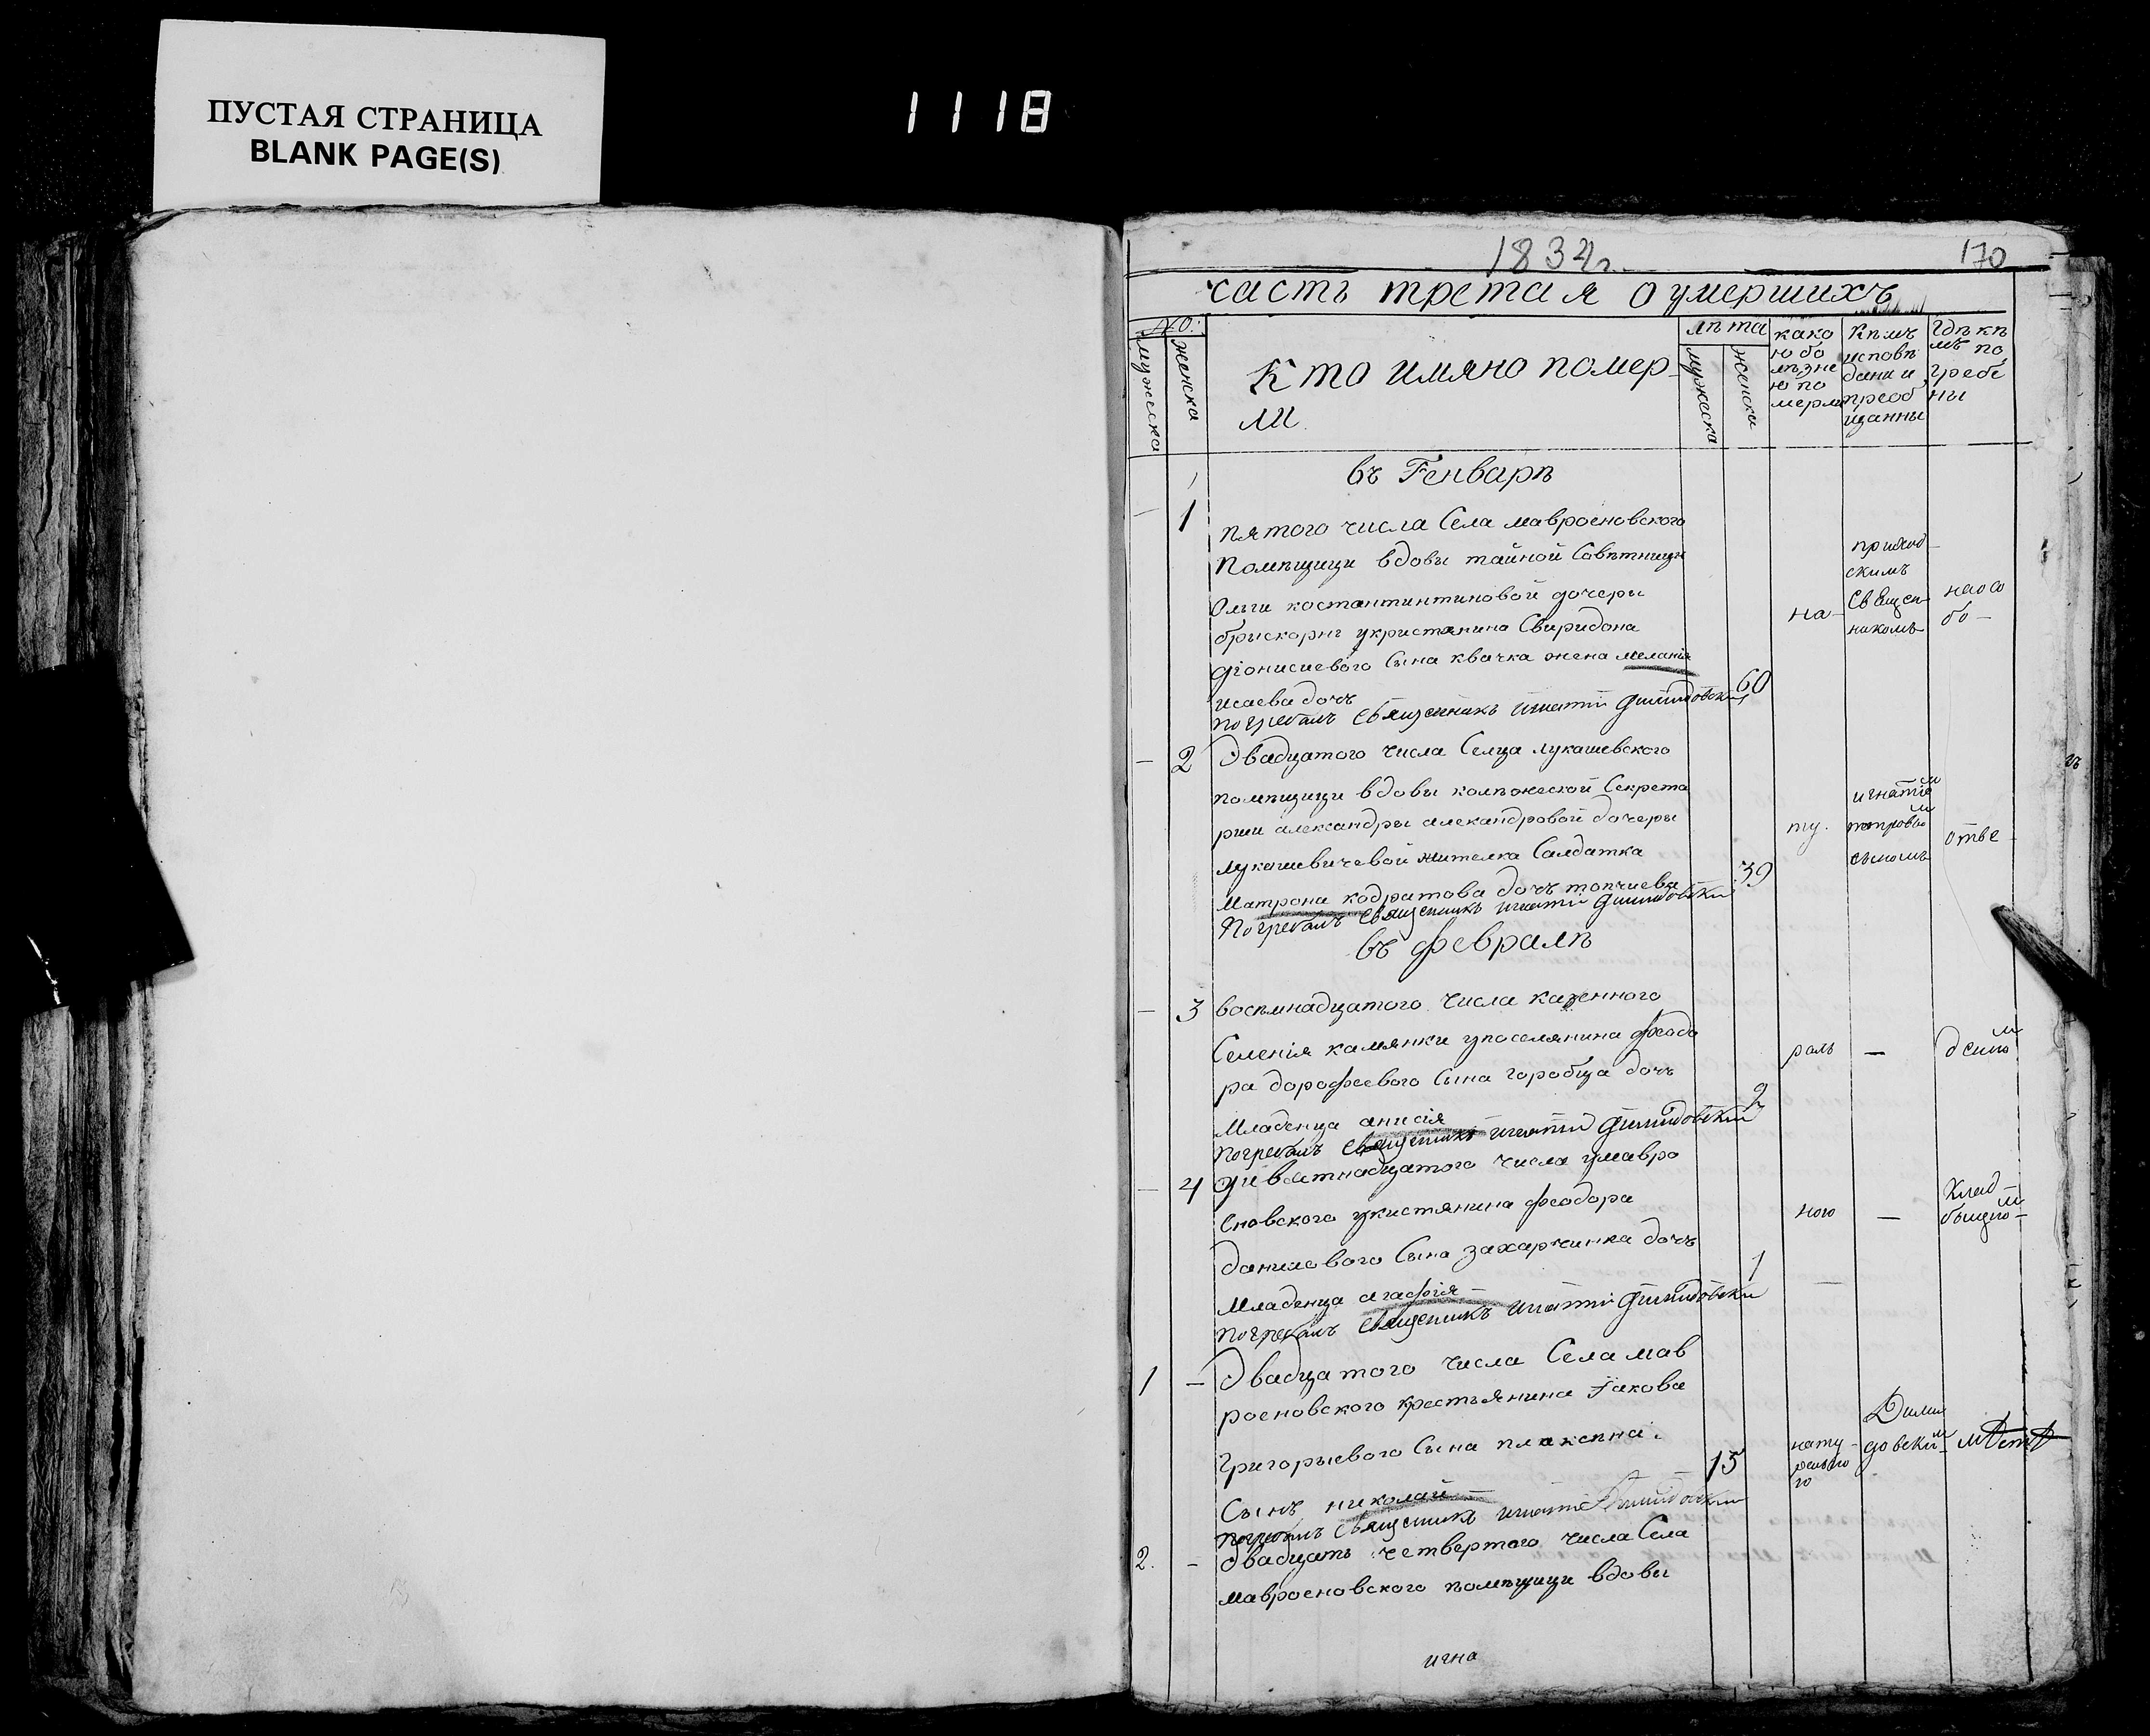 ПУСТАЯ СТРАНИЦА
BLANK PAGE(S)
1118
1834г.
170
часть третая о умершихъ
No:
мужеска
женска
Кто имяно помер
ли
лѣта
мужеска
женска
како
ю бо
лѣзне
ю по
мерли
Кѣмъ
исповѣ
дани и
преоб
щанны
Гдѣ кѣ
мъ по
гребе
ны
въ Генварѣ
1
пятого числа Села мавроеновского
Помѣщици вдовы тайной Совѣтници
Ольги костантинтиновой дочеры
брискорнг укристянина Свиридона
дїонисиевого Сына квачка жена меланїя
исаева дочъ
60
погребалъ Священникъ Игнатій Димидовскій
на
приход
скимъ
Священ
никомъ
на осо
бо
2
Двадцатого числа Селца лукашевского
помѣщици вдовы колѣжеской Секрета
рши александры алекандровой дочеры
лукашевичевой жителка Салдатка
Матрона кодратова дочъ топчиева
39
Погребалъ Священникъ Игнатій Димидовскій
ту.
игнатіем
петровым
сыномъ
отве
въ февралѣ
3
восѣмнадцатого числа казенного
Селенія камянки упоселянина феодо
ра дорофеевого Сына горобца дочъ
Младенца анисія
2
погребалъ Священникъ Игнатій Димидовскій
раль
деном
4
Девѣтнадцатого числа умавро
еновского укистянина феодора
данилового Сына захарченка дочъ
Младенца агафія
1
погребалъ Священникъ Игнатій Димидовскій
ного
клад
бищом
1
Двадцатого числа Села мав
роеновского крестьянина Іакова
Григорьевого Сына плаксѣна
Сынъ николай
15
погребалъ Священникъ Игнатій Димидовскій
нату
рально
го
Дими
довским
мѣстѣ
2.
Двадцать четвертого числа Села
мавроеновского помѣщици вдовы
игна